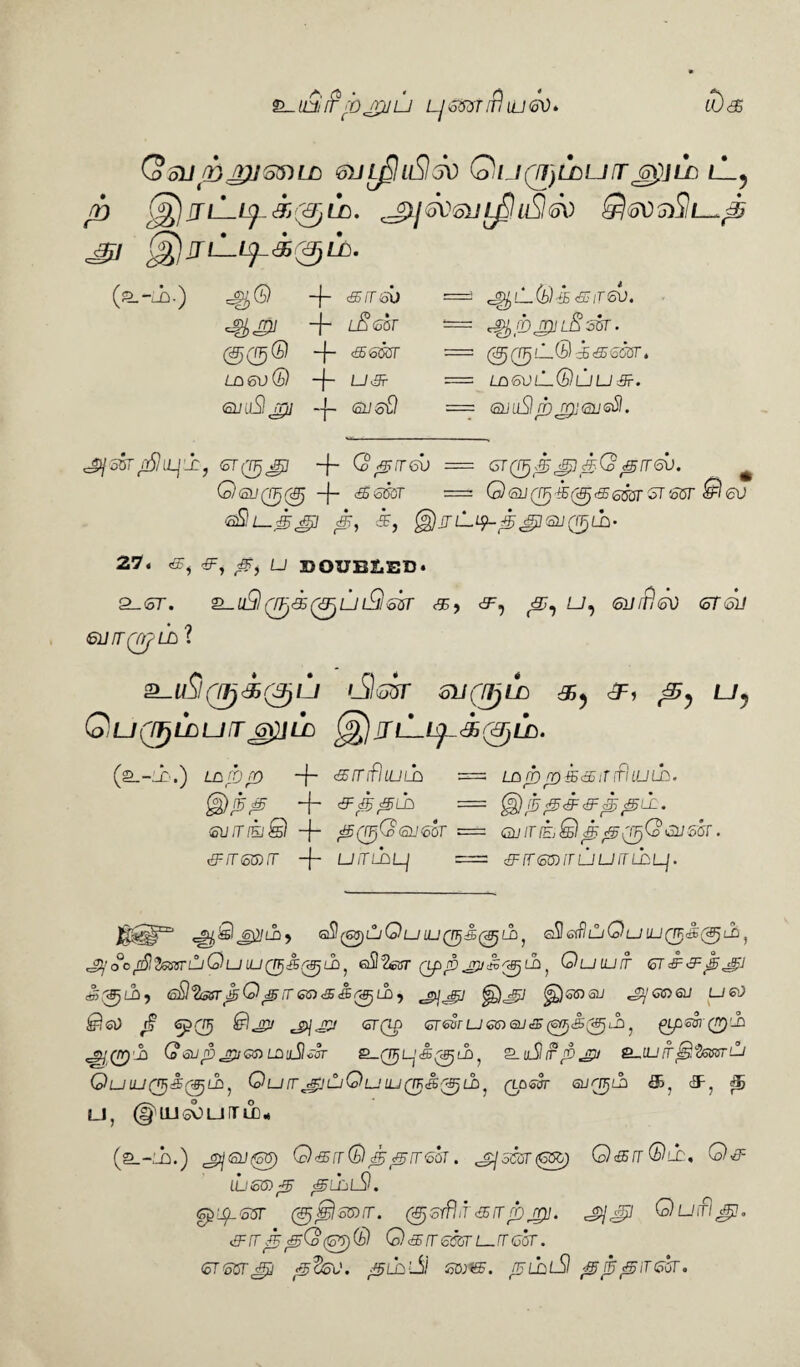 உயிரற்றுப் புணரியல். ௰௧
வேற்றுமை வழியில் பெரும்பாலும் ட்,
ற் இரட்டிக்கும். அல்வழியில் சிலவிடத்
து இரட்டிக்கும்.
(உ-ம்.) ஆடு + கால் = ஆட்டுக்கால்.
ஆறு + மீன் = ஆற்றுமீன்.
குருடு + கண் = குருட்டுக்கண்.
மலடு + பசு = மலட்டுப்பசு.
வயிறு + வலி = வயிற்றுவலி.
அன்றியும், எருது + தோல் = எருத்துத்தோல்.
வெருகு + கண் = வெருக்குக்கண் என சில
விடத்து த், க், இரட்டித்துவரும்.
27. க, ச, த, ப DOUBLED.
உ-எ. உயிருக்குப்பின் க, ச, த, ப, வரில் எவ்
வாறாம்?
உயிருக்குப் பின் வரும் க, ச, த, ப,
பெரும்பாலும் இரட்டிக்கும்.
(உ-ம்.) மற்ற + காரியம் = மற்றக்காரியம்.
இந்த + சத்தம் = இந்தச்சத்தம்.
வாங்கி + தருவேன் = வாங்கித்தருவேன்.
சாரை + பாம்பு = சாரைப்பாம்பு.
☞ ஆகிலும், விஞப்பெயருக்கும், விளிப்பெயருக்கும்,
அஃறிணைப்பெயருக்கும், வினை முற்றுக்கும், பெயர் எச்சத்து
க்கும், வினைத்தொகைக்கும், அது இது இவை அவை பல
சில நீ ஒரு சிறு அறு எழு என்பவைகளுக்கும், மூன்றும்
ஆறும் வேற்றுமையின் உருபுக்கும், உயிர்ற்று உயர்திணைப்
பெயருக்கும், பொதுப்பெயருக்கும், முன் வரும் க, ச, த
ப, இயல்பாம்.
(உ-ம்.) அவனா கொடுத்தான். அண்ணா கொடும். செ
ய்கை தம்பி.
ஒடின குதிரை. குளிர்காற்று. அது பெரிது.
சாத்தனொடு கொண்டான்.
எனது தலை. தம்பி கை. நம்பி தந்தான்.